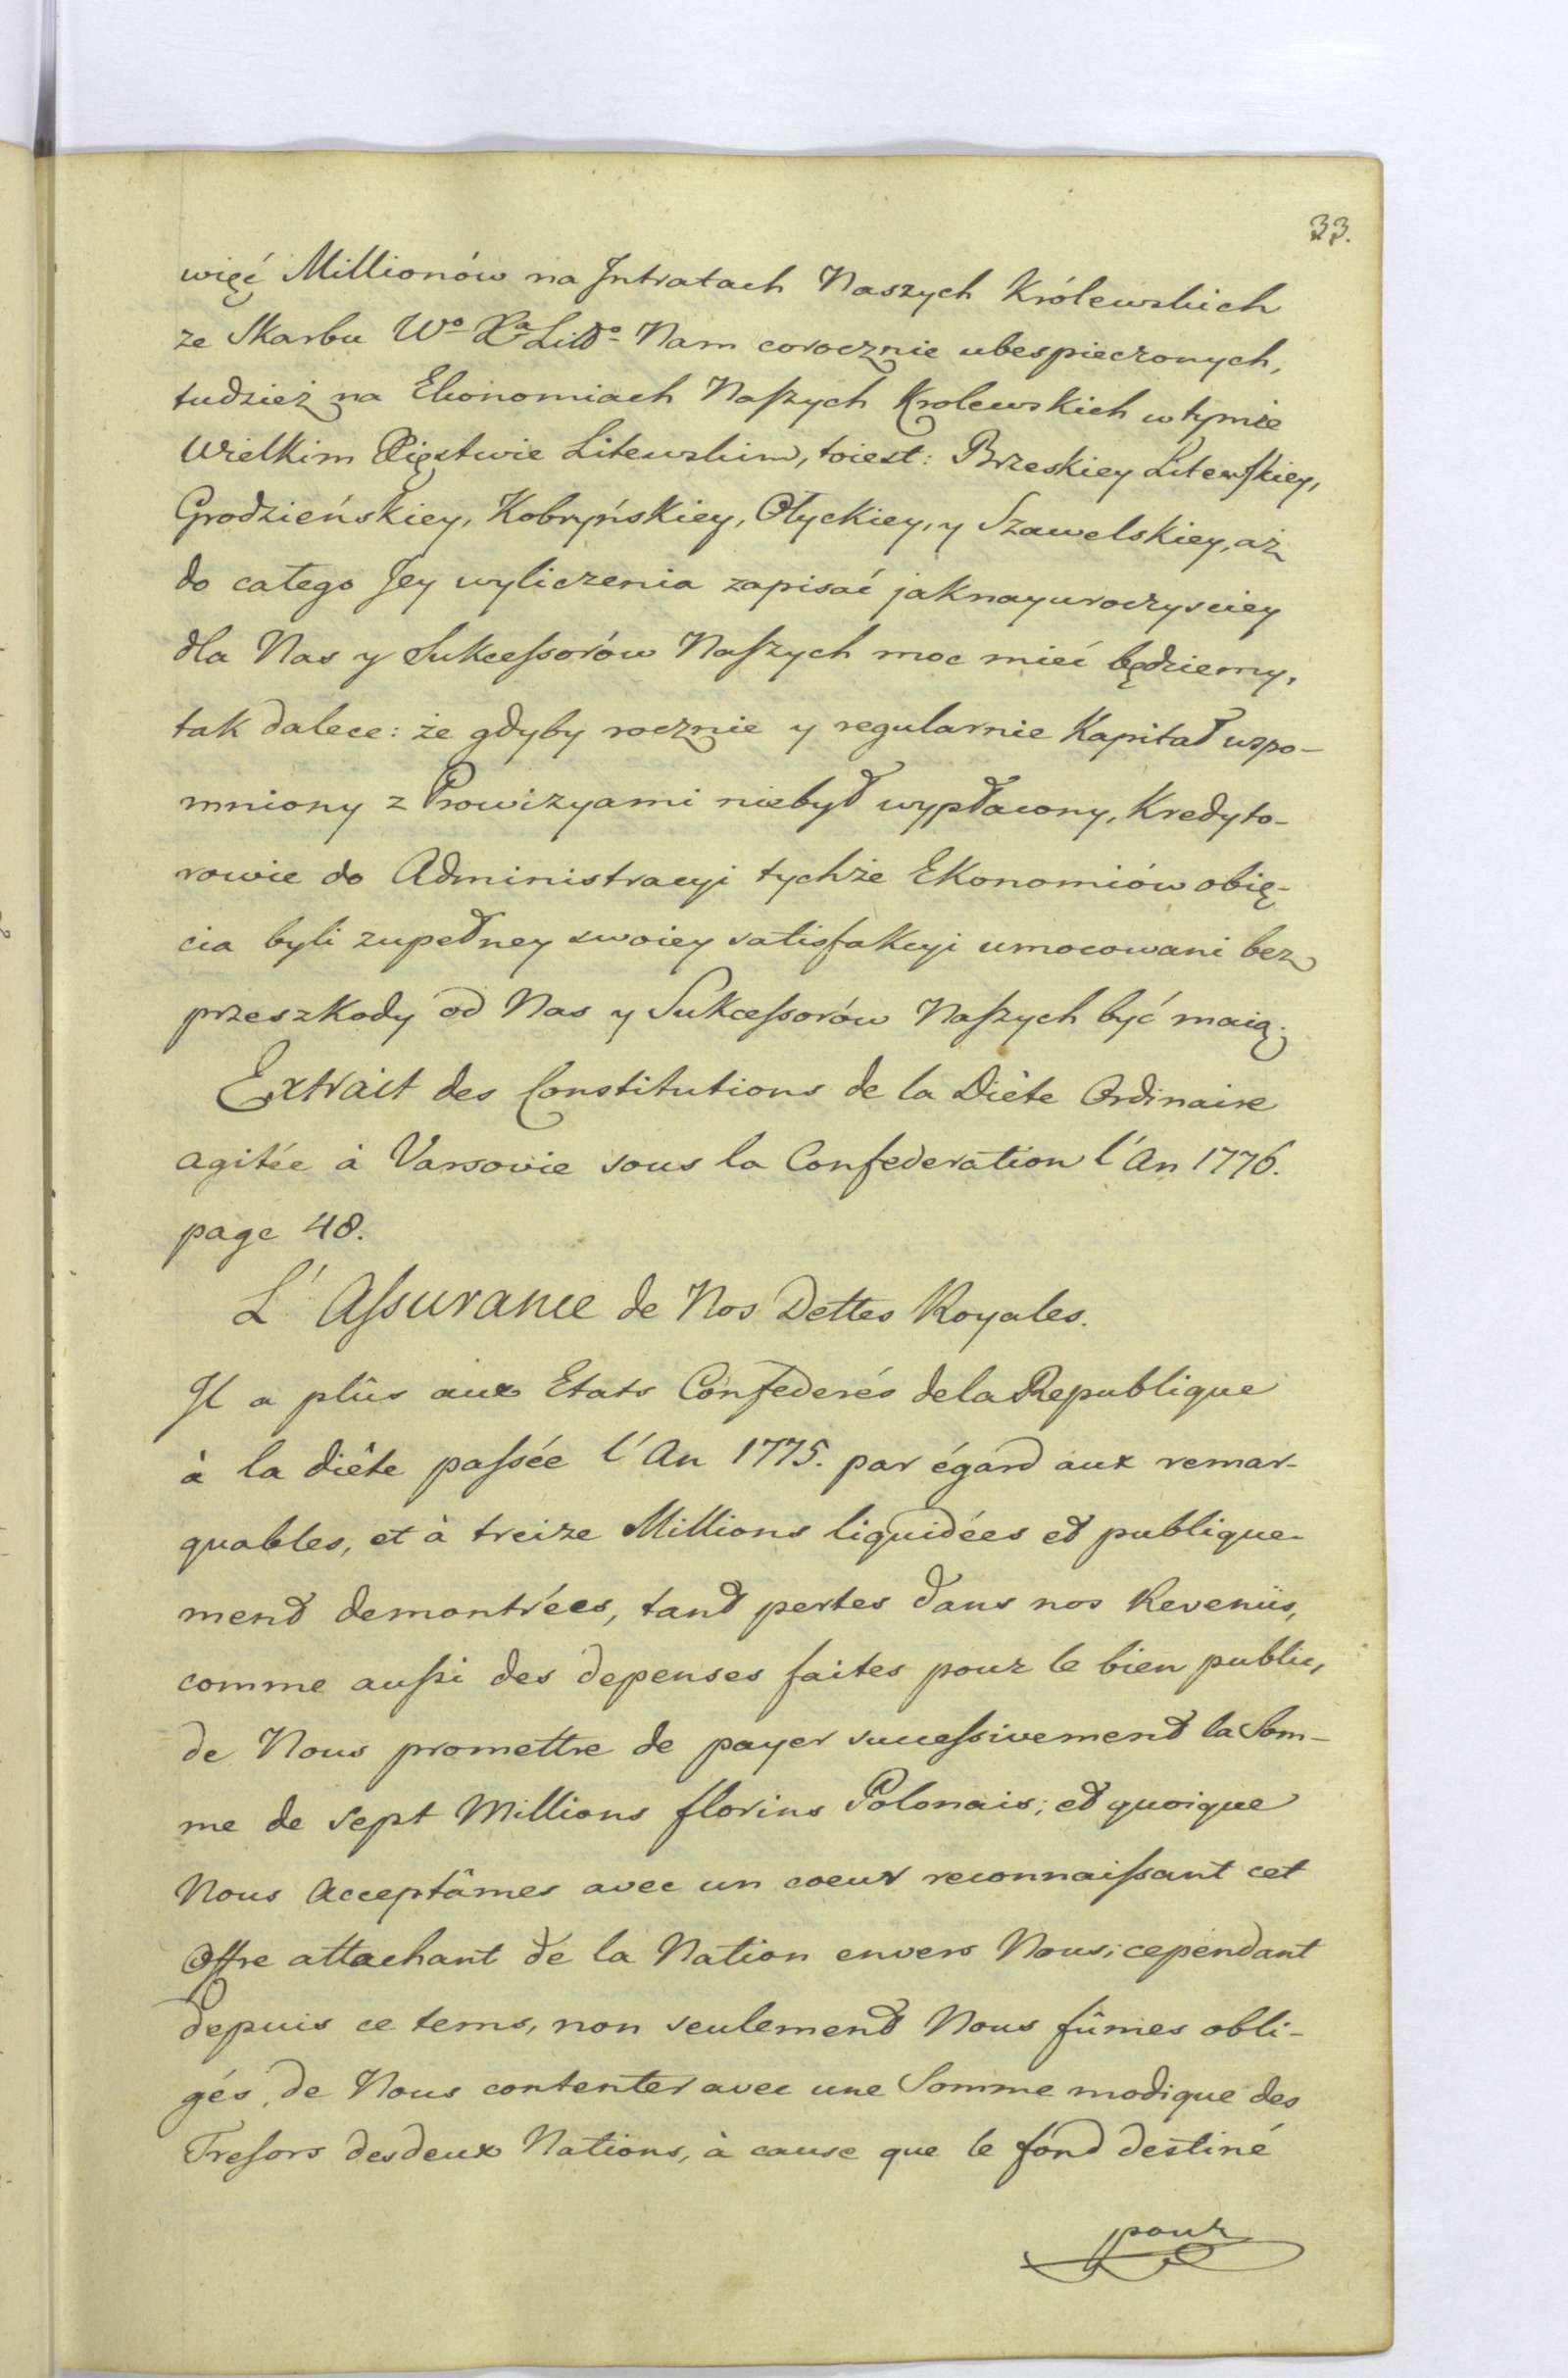 33.
więć Millionów na Intratach Naszych Królewskich
ze Skarbu Wo Xa Litto Nam corocznie ubespieczonych,
tudzież na Ekonomiach Naſzych Krolewskich w tymże
Wielkim Xięstwie Litewskim, toiest: Brzeskiey Litewſkiey,
Grodzieńskiey, Kobryńskiey, Olyckiey, y Szawelskiey, aż
do całego Jey wyliczenia zapisać jaknayuroczyściey
dla Nas y Sukceſsorów Naſzych moc mieć będziemy,
tak dalece: że gdyby rocznie y regularnie Kapitał wspo-
mniony z Prowizyami niebył wypłacony, Kredyto-
rowie do Administracyi tychże Ekonomiów obię-
cia byli zupełney swoiey satisfakcyi umocowani bez
przeszkody od Nas y Sukceſsorów Naſzych być maią.
Extrait des Constitutions de la Diète Ordinaire
agitée à Varsovie sous la Confederation l'An 1776.
page 48.
L'Aſsurance de Nos Dettes Royales.
Il a plûs aux Etats Confederés de la Republique
à la diête paſsée l'An 1775. par égard aux remar-
quables, et à treize Millions liquidées et publique-
ment demontrées, tant pertes dans nos Revenüs,
comme auſsi des depenses faites pour le bien public,
de Nous promettre de payer succeſsivement la Som-
me de sept Millions florins Polonais; et quoique
Nous Acceptâmes avec un coeur reconnaiſsant cet
Offre attachant de la Nation envers Nous; cependant
depuis ce tems, non seulement Nous fûmes obli-
gés, de Nous contenter avec une Somme modique des
Treſors des deux Nations, à cause que le fond destiné
pour